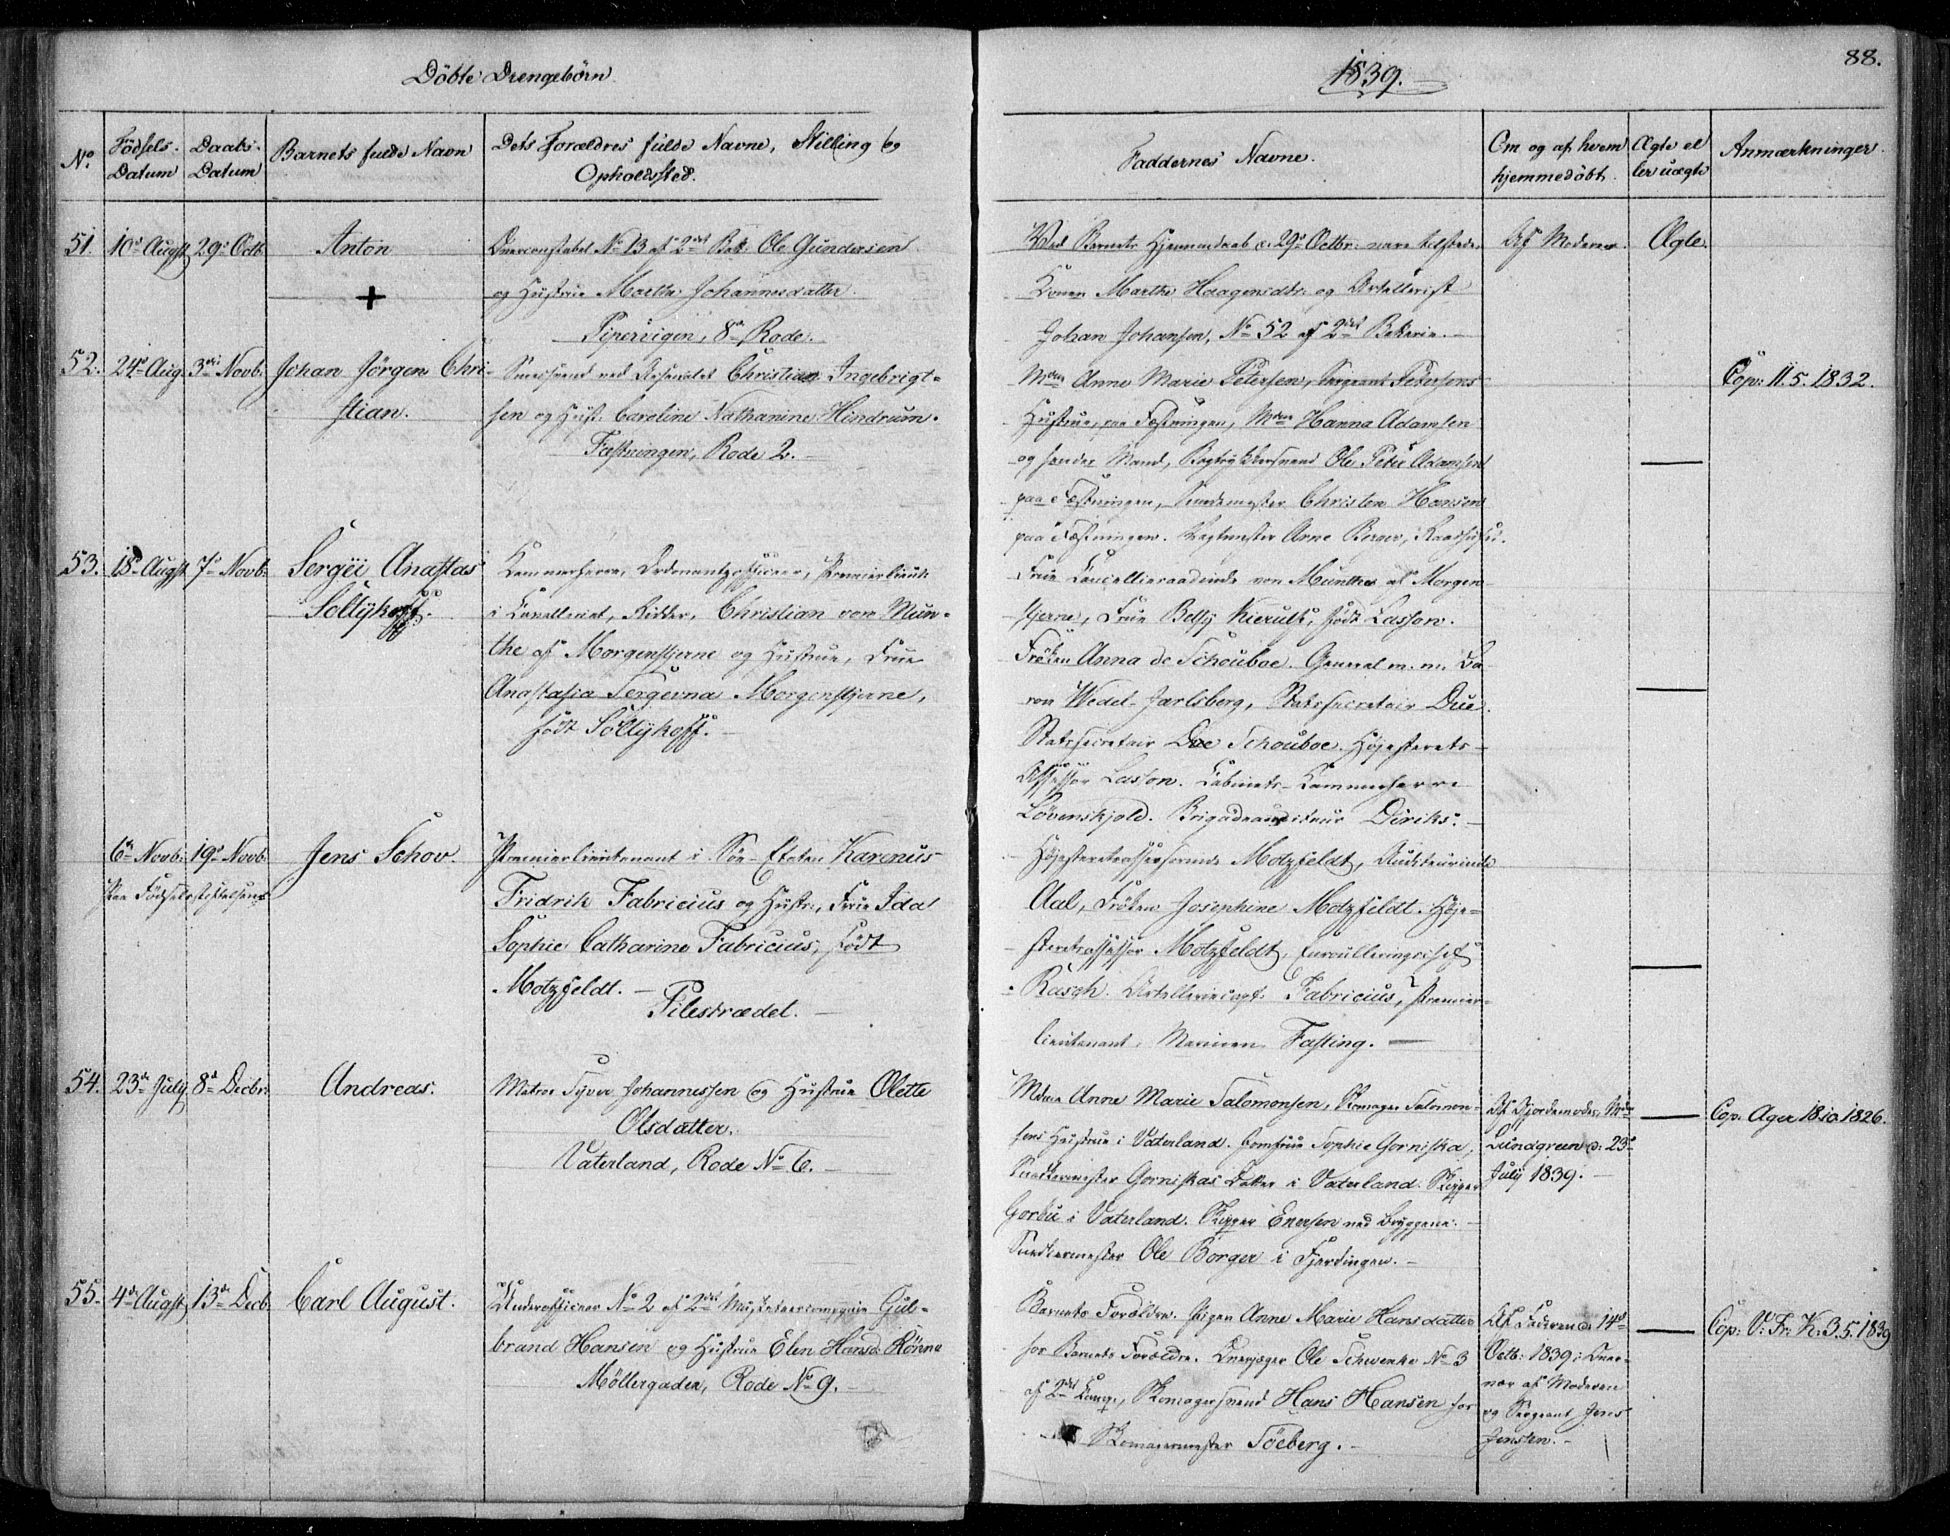 Döbte Drengebörn
1839.
88.
No.
Födsels-
Datum
Daabs-
Datum
Barnets fulde Navn
Dets Forældres fulde Navne, Stilling og
Opholdssted.
Faddernes Navne.
Om og af hvem
hjemmedöbt.
Ægte el
ler uægte
Anmærkninger.
51. 10de Augst 29de Octb. Anton
Overconstabel No 13 af 2det Batt. Ole Gundersen
og Hustrue Marthe Johannesdatter.
Pipervigen, 8de Rode.
Ved Barnets Hjemmedaab d. 29de Octbr. vare tilstede
Konen Marthe Haagensdtr. og Artellerist
Johan Johansen, No 52 af 2det Batterie.
Af Moderen.
Ægte.
52. 24de Aug. 3die Novb. Johan Jörgen Chri-
stian.
Smedsvend ved Arsenalet Christian Ingebrigt-
sen og Hust. Caroline Nathanine Hindrum.
Fæstningen, Rode 2.
Mdm Anne Marie Petersen, Sergeant Petersens
Hustrue, paa Fæstningen, Mdm Hanna Adamsen
og hendes Mand, Bogtrykkersvend Ole Peter Adamsen
paa Fæstningen, Christen Hansen
paa Fæstningen. Vagtmester Arne Berner, Raadhuset.
Cop: 11.5.1832.
53. 18de Augst 7de Novb. Sergëi Anastas
Soltÿkoff.
Kammerherre, Ordonantzofficeer, Premierlieut.
i Cavalleriet, Ridder, Christian von Mun-
the af Morgenstjerne og Hustrue, Frue
Anastasia Sergevna Morgenstjerne,
født Soltÿkoff.
Frue Cancellieraadinde von Munthe af Morgen-
stjerne, Frue Betsy Kierulf, født Lasson.
Fröken Anna de Schouboe. General m. m. Ba-
ron Wedel-Jarlsberg, Statssecretair Due.
Statssecretair Due Schouboe. Höjesterets-
Assessor Lasson. Cabinets-Kammerherre
Lövenskjold. Brigadeauditeur Diriks.
6te Novb. 19de Novb. Jens Schov.
Paa Födselsstiftelsen
Premierlieutenant i Söe-Etaten Karenus
Fridrik Fabricius og Hustr., Frue Ida
Sophie Catharine Fabricius, födt
Motzfeldt.
Pilestrædet.
Höjesteretsassessorinde Motzfeldt, Auditeurinde
Aal, Fröken Josephine Motzfeldt. Höje-
steretsassessor Motzfeldt, Enroulleringschef
Rasch. Artelleriecapt. Fabricius, Premier-
lieutenant i Marinen Fasting.
54. 23de July 8de Decbr. Andreas.
Matros Syver Johannessen og Hustrue Olette
Olsdatter.
Vaterland, Rode No 6.
Mdme Anne Marie Salomonsen, Skomager Salomon-
sens Hustrue i Vaterland. Jomfrue Sophie Gorniska,
Snedkermester Gorniskas Datter i Vaterland. Skipper
Gorbu i Vaterland. Skipper Enersen ved Bryggene.
Snedkermester Ole Borger i Fjerdingen.
Af Gjordemoder, Mdm
Lundgreen d. 23de
July 1839.
Cop. Ager 18.10.1826.
55. 4de Augst 13de Decb. Carl August.
Underofficeer No 2 af 2det Musketeercompagnie Gul-
brand Hansen og Hustrue Elen Hansd. Rönne
Möllergaden, Rode No 9.
Barnets Forældre. Pigen Anne Marie Hansdatter
hos Barnets Forældre. Overjæger Ole Schwenke No 3
af 2det Comp., Skomagersvend Hans Hansen hos
Skomagermester Söeberg.
Af Faderen d. 14de
Octb. 1839; Over-
vær af Moderen
og Sergeant Jens
Jensen.
Cop: V. Fr. K. 3.5.1839